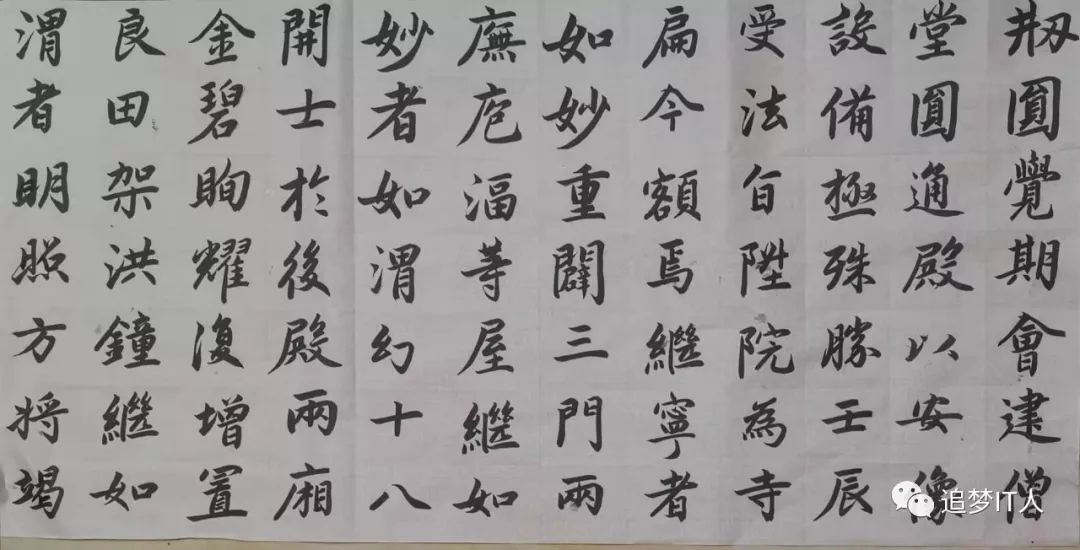 刱圓覺期會建僧
堂圓通殿以安像
設備極殊勝壬辰
受法旨陞院為寺
扁今額焉繼寧者
如妙重闢三門兩
廡庖湢等屋繼如
妙者如渭幻十八
開士於後殿兩廂
金碧眴耀復增置
良田架洪鐘繼如
渭者明照方將竭
追梦IT人